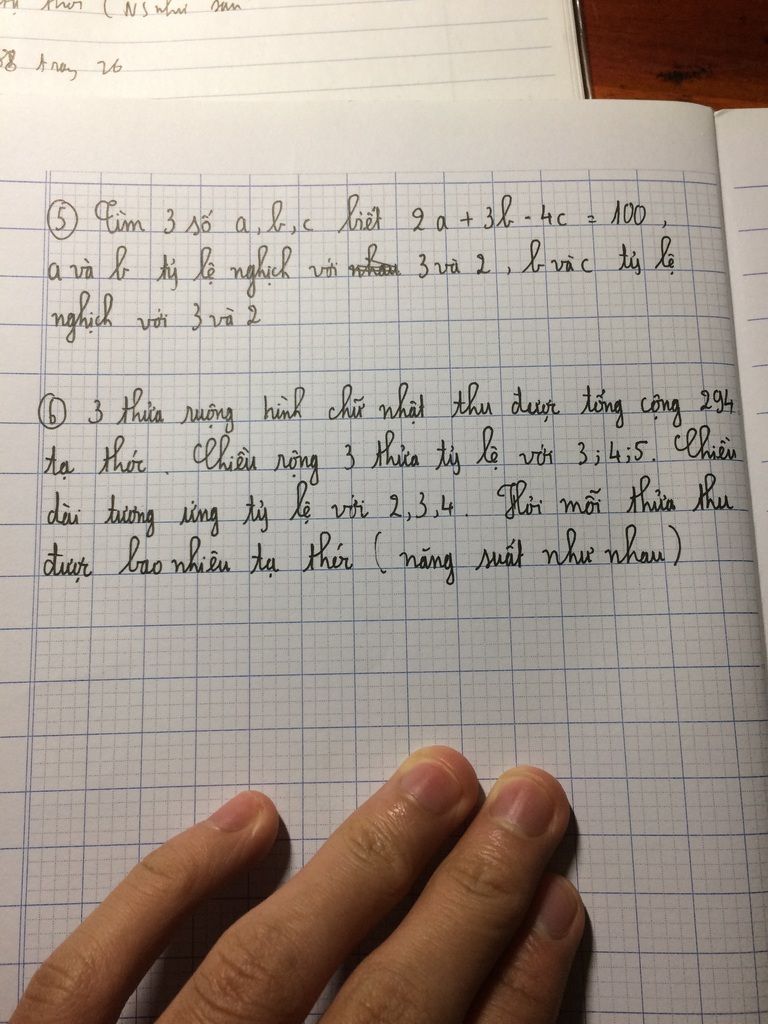 26
⑤ Tìm 3 số a, b, c biết 2a + 3b - 4c = 100,
a và b tỷ lệ nghịch với nhau 3 và 2, b và c tỷ lệ
nghịch với 3 và 2
⑥ 3 thửa ruộng hình chữ nhật thu được tổng cộng 294
tạ thóc. Chiều rộng 3 thửa tỷ lệ với 3; 4; 5. Chiều
dài tương ứng tỷ lệ với 2, 3, 4. Hỏi mỗi thửa thu
được bao nhiêu tạ thóc (năng suất như nhau)